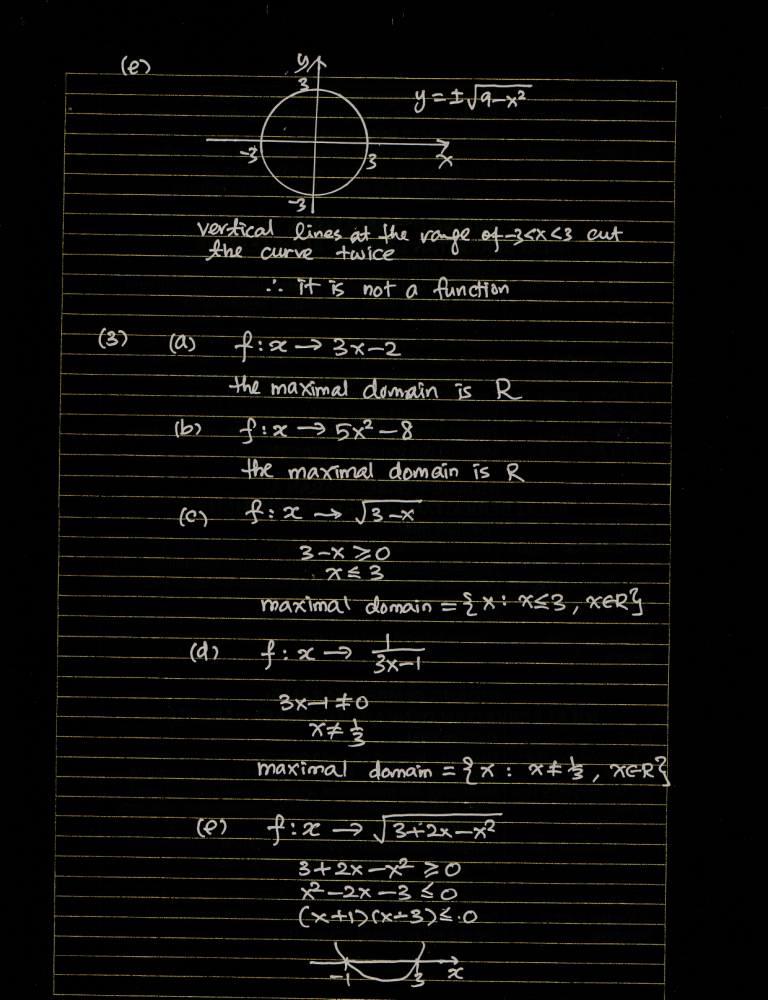 (e)
y
3
y = ±√(9-x²)
-3
3
x
-3
vertical lines at the range of -3<x<3 cut
the curve twice
∴ it is not a function
(3) (a) f : x → 3x-2
the maximal domain is R
(b) f : x → 5x² - 8
the maximal domain is R
(c) f : x → √(3-x)
3-x ≥ 0
x ≤ 3
maximal domain = {x : x≤3, x∈R}
(d) f : x → 1/(3x-1)
3x-1 ≠ 0
x ≠ 1/3
maximal domain = {x : x ≠ 1/3, x∈R}
(e) f : x → √(3+2x-x²)
3+2x-x² ≥ 0
x²-2x-3 ≤ 0
(x+1)(x-3) ≤ 0
-1 3 x